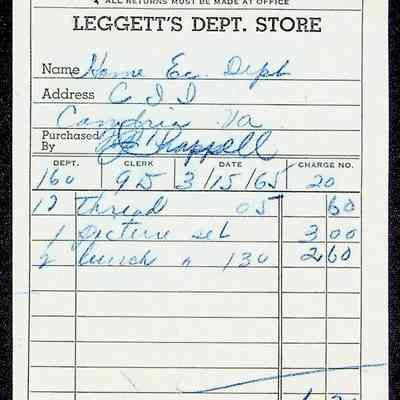 ALL RETURNS MUST BE MADE AT OFFICE
LEGGETT'S DEPT. STORE
Name Home Ec. Dept
Address C I I
Cambria Va
Purchased By Chappell
DEPT. CLERK DATE CHARGE NO.
160 95 3/15/65 20
12 thread 05 60
1 picture set 3 00
2 lunch n 130 2 60